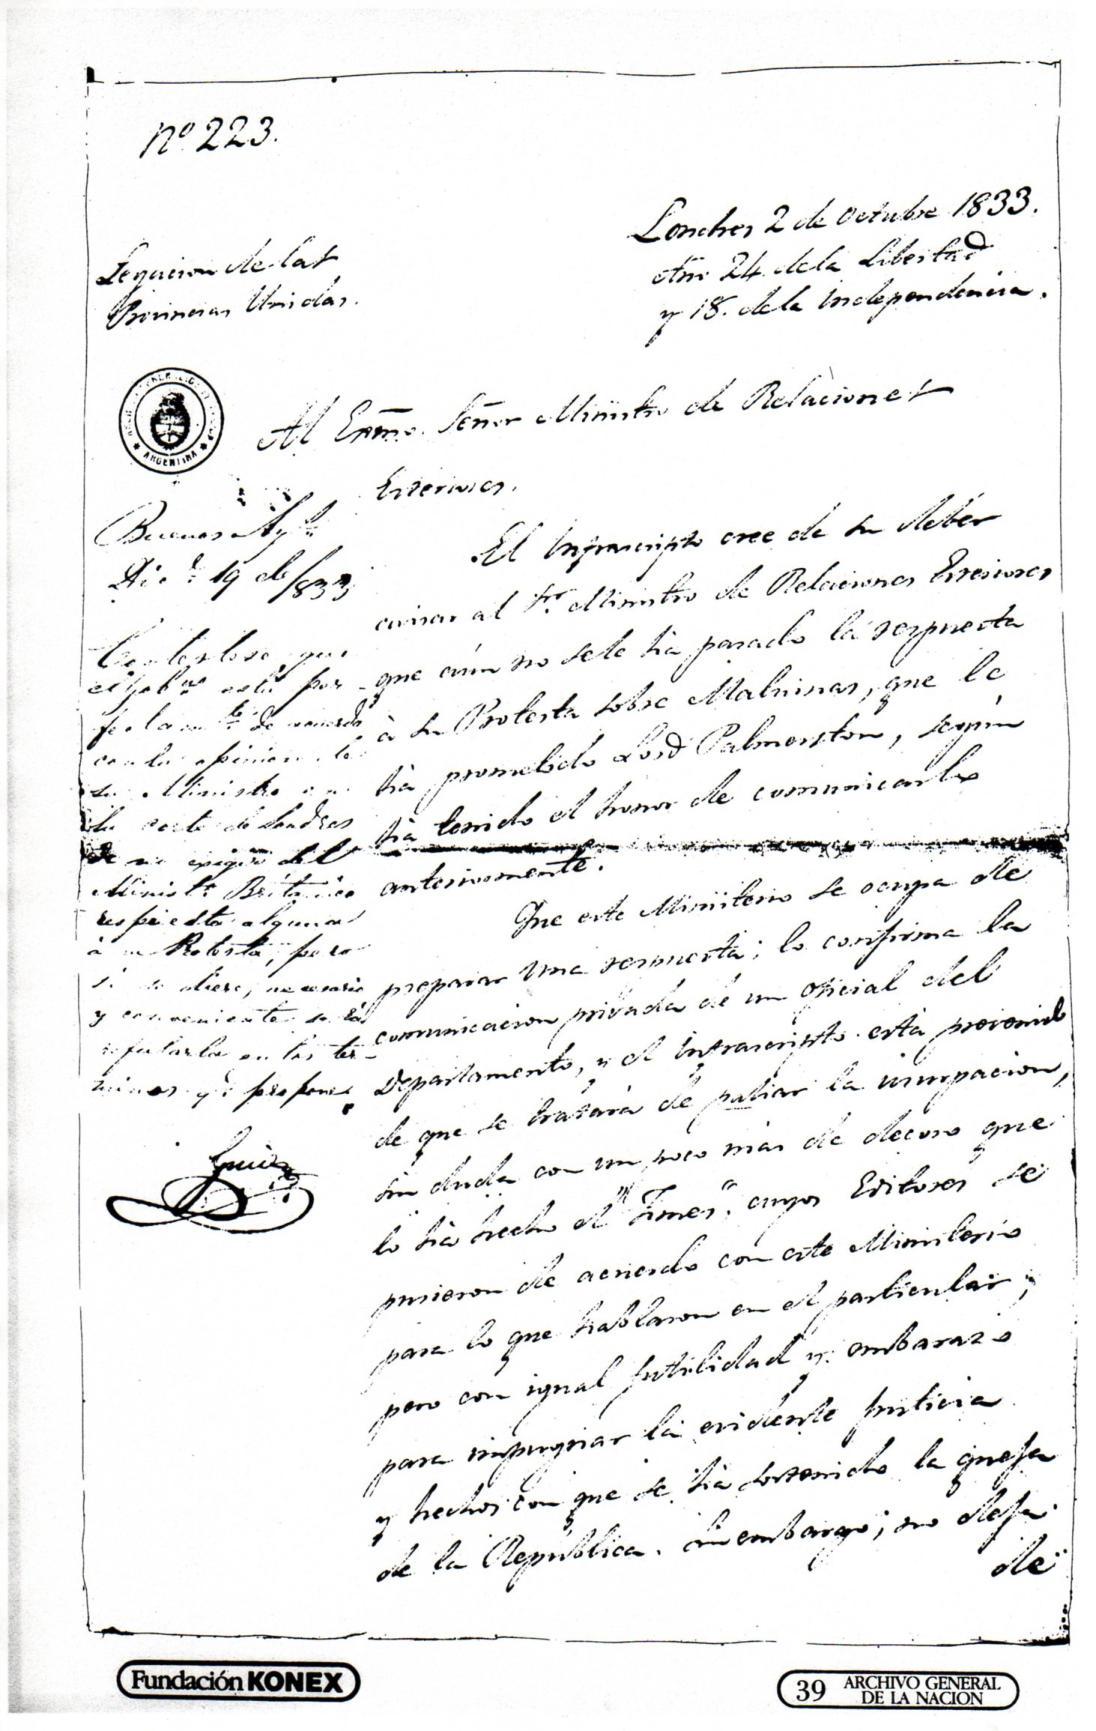 Nº 223.
Londres 2 de Octubre 1833.
Año 24 de la Libertad
y 18. de la Independencia.
Legacion de las
Provincias Unidas.
ARGENTINA
Al Exmo. Señor Ministro de Relaciones
Esteriores.
Buenos Ay.s
Dic.e 19 de/833
Contestese que
el Gob.no está per-
fectam.te de acuerdo
con la opinion de
su Ministro en
la corte de Londres
de no exigir del
Minist.o Británico
respuesta alguna
á su Protesta; pero
si se diere, necesario
y conveniente será
refutarla en los ter-
minos q.e propone
El Infrascripto cree de su deber
avisar al Sr. Ministro de Relaciones Esteriores
que aún no se le há pasado la respuesta
à su Protesta sobre Malvinas, que le
há prometido Lord Palmerston, segun
há tenido el honor de comunicarlo
anteriormente.
Que este Ministerio se ocupa de
preparar una respuesta; lo confirma la
comunicacion privada de un oficial del
Departamento, y el Infrascripto está prevenido
de que se tratará de paliar la usurpacion,
sin duda con un poco mas de decoro que
lo há hecho el "Times", cuyos Editores se
pusieron de acuerdo con este Ministerio
para lo que hablaron en el particular;
pero con igual futilidad y embarazo
para impugnar la evidente justicia
y hechos con que se há sostenido la queja
de la República. Sin embargo; no deja
de
Fundación KONEX
39 ARCHIVO GENERAL
DE LA NACION